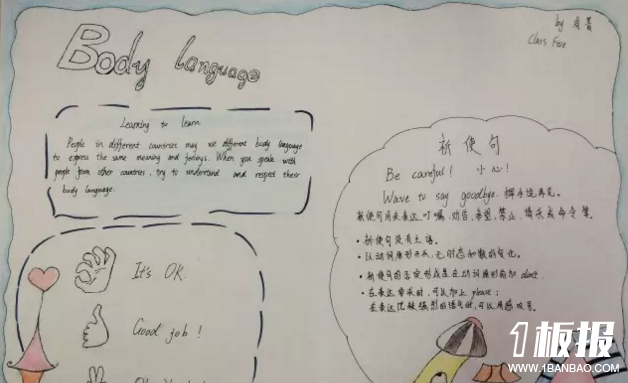 Body language
by 周蕾
Class Five
Learning to learn
People in different countries may use different body language
to express the same meaning and feelings. When you speak with
people from other countries, try to understand and respect their
body language.
It's OK.
Good job!
祈使句
Be careful! 小心!
Wave to say goodbye. 挥手说再见。
祈使句用来表达叮嘱、劝告、希望、禁止、请求或命令等。
• 祈使句没有主语。
• 以动词原形开头,无时态和数的变化。
• 祈使句的否定形式是在动词原形前加 don't.
• 在表达请求时,可以加上 please;
在表达比较强烈的语气时,可以用感叹号。
1板报
WWW.1BANBAO.COM